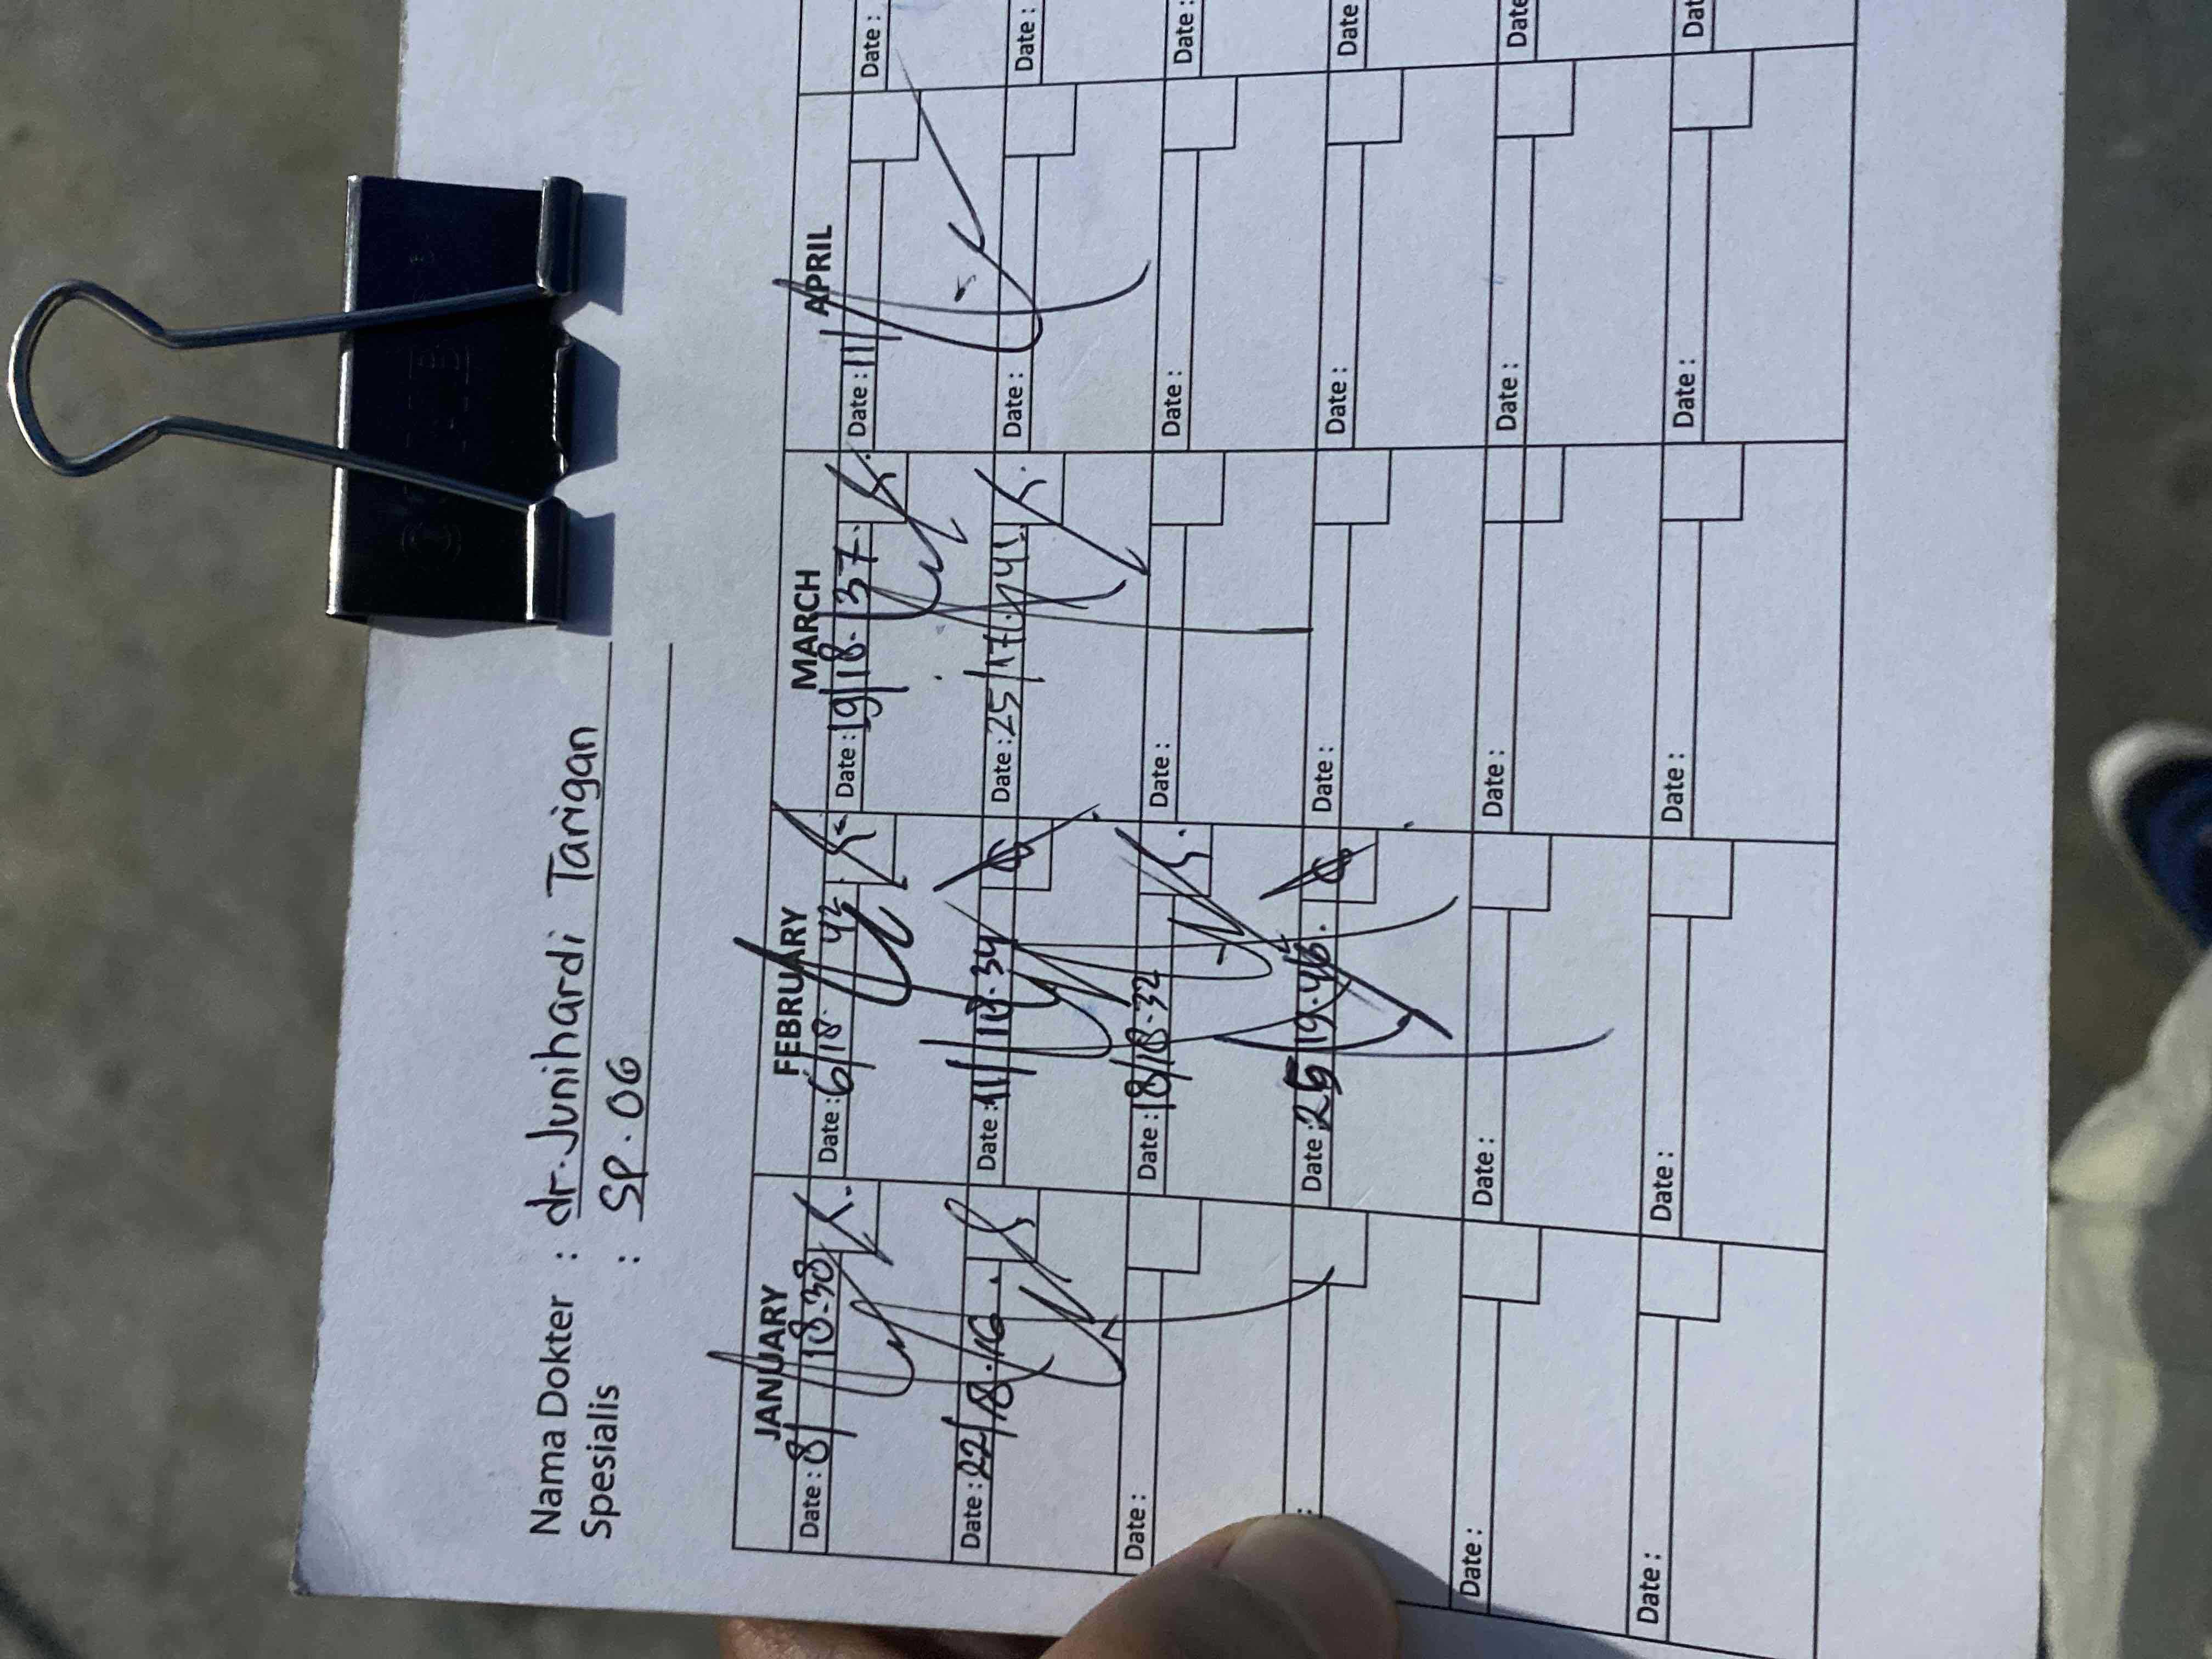 Nama Dokter : dr. Junihardi Tarigan
Spesialis : SP. OG
JANUARY FEBRUARY MARCH APRIL
Date : 8/ 18.38 Date : 6/18. 42 Date : 19/18.37. Date : 11/ Date :
Date : 22/18.16. Date : 11/18.34 Date : 25/17. Date : Date :
Date : Date : 18/18.32 Date : Date : Date :
: Date : 25/19.46. Date : Date : Date
Date : Date : Date : Date : Date
Date : Date : Date : Date : Dat